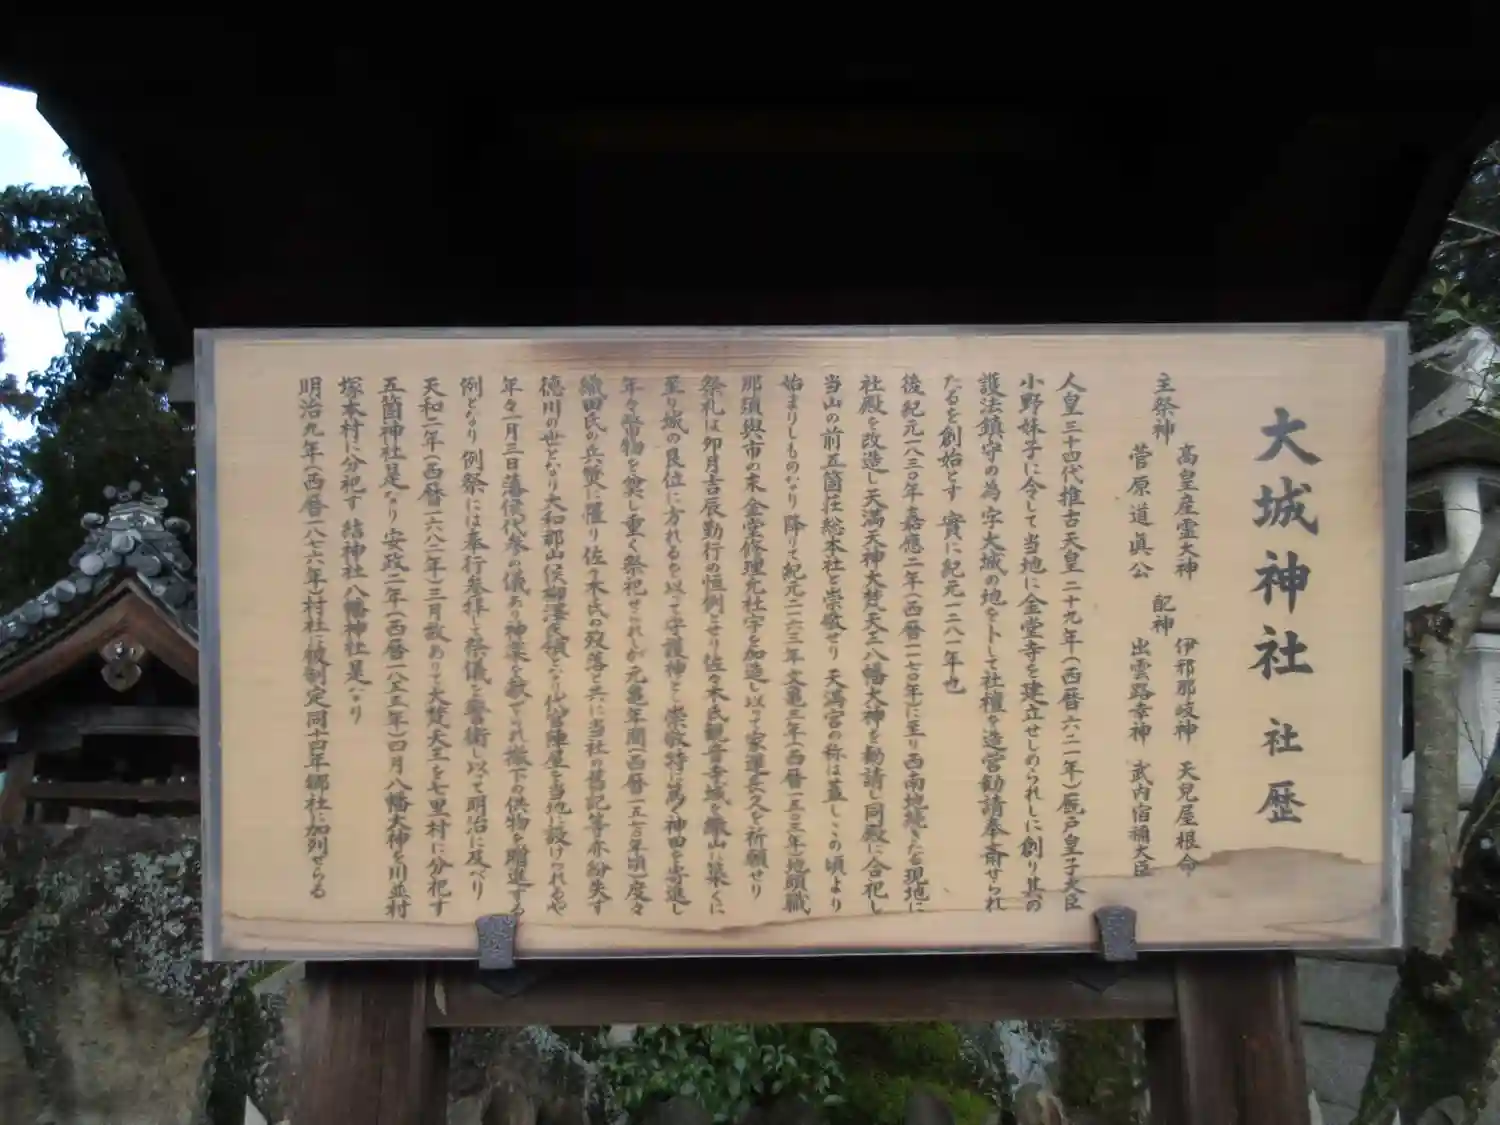 大城神社 社歴
主祭神 高皇産霊大神 菅原道眞公 配神 伊邪那岐神 天兒屋根命 出雲路幸神 武内宿禰大臣
人皇三十四代推古天皇二十九年(西暦六二一年)厩戸皇子大臣
小野妹子に令して当地に金堂寺を建立せしめられしに創り其の
護法鎮守の為字大城の地を卜して社檀を造営勧請奉斎せられ
たるを創始とす 實に紀元一二八一年也
後紀元一八三〇年嘉應二年(西暦一一七〇年)に至り西南地続きなる現地に
社殿を改造し天満天神大梵天王八幡大神を勧請し同殿に合祀し
当山の前五箇荘総本社と崇敬せり 天満宮の称は蓋しこの頃より
始まりしものなり 降りて紀元二一六三年文亀三年(西暦一五〇三年)地頭職
那須與市の末金堂修理亮社宇を造し以って家運長久を祈願せり
祭礼は卯月吉辰勤行の恒例とせり佐々木氏観音寺城を繖山に築くに
至り城の艮位に方れるを以って守護神と崇敬特に篤く神田を寄進し
年々幣物を奠し重く祭祀せられしが元亀年間(西暦一五七〇年頃)度々
織田氏の兵燹に罹り佐々木氏の歿落と共に当社の舊記等亦紛失す
徳川の世となり大和郡山侯柳澤氏領となり代官陣屋を当地に設けられるや
年々一月三日藩侯代参の儀あり神楽を献ぜられ撤下の供物を贈進する
例となり例祭には奉行参拝して祭儀を警衛し以って明治に及べり
天和二年(西暦一六八二年)三月故ありて大梵天王を七里村に分祀す
五箇神社是なり安政二年(西暦一八五五年)四月八幡大神を川並村
塚本村に分祀す 結神社八幡神社是なり
明治九年(西暦一八七六年)村社に被制定同十四年郷社に加列せらる